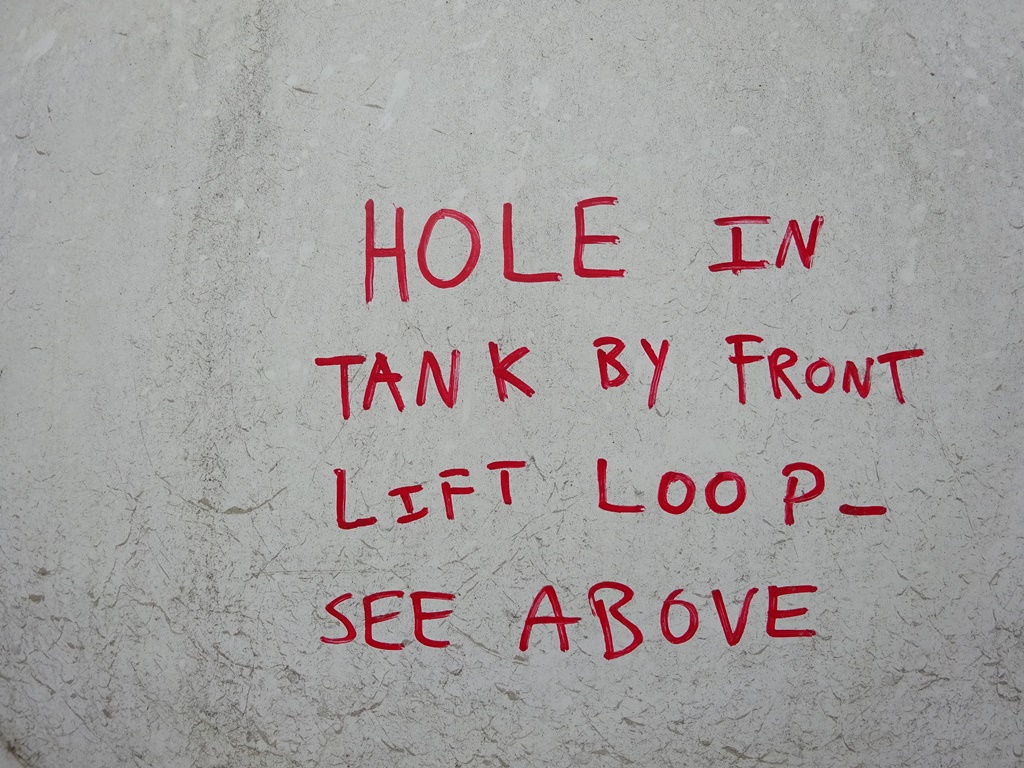 HOLE IN
TANK BY FRONT
LIFT LOOP_
SEE ABOVE